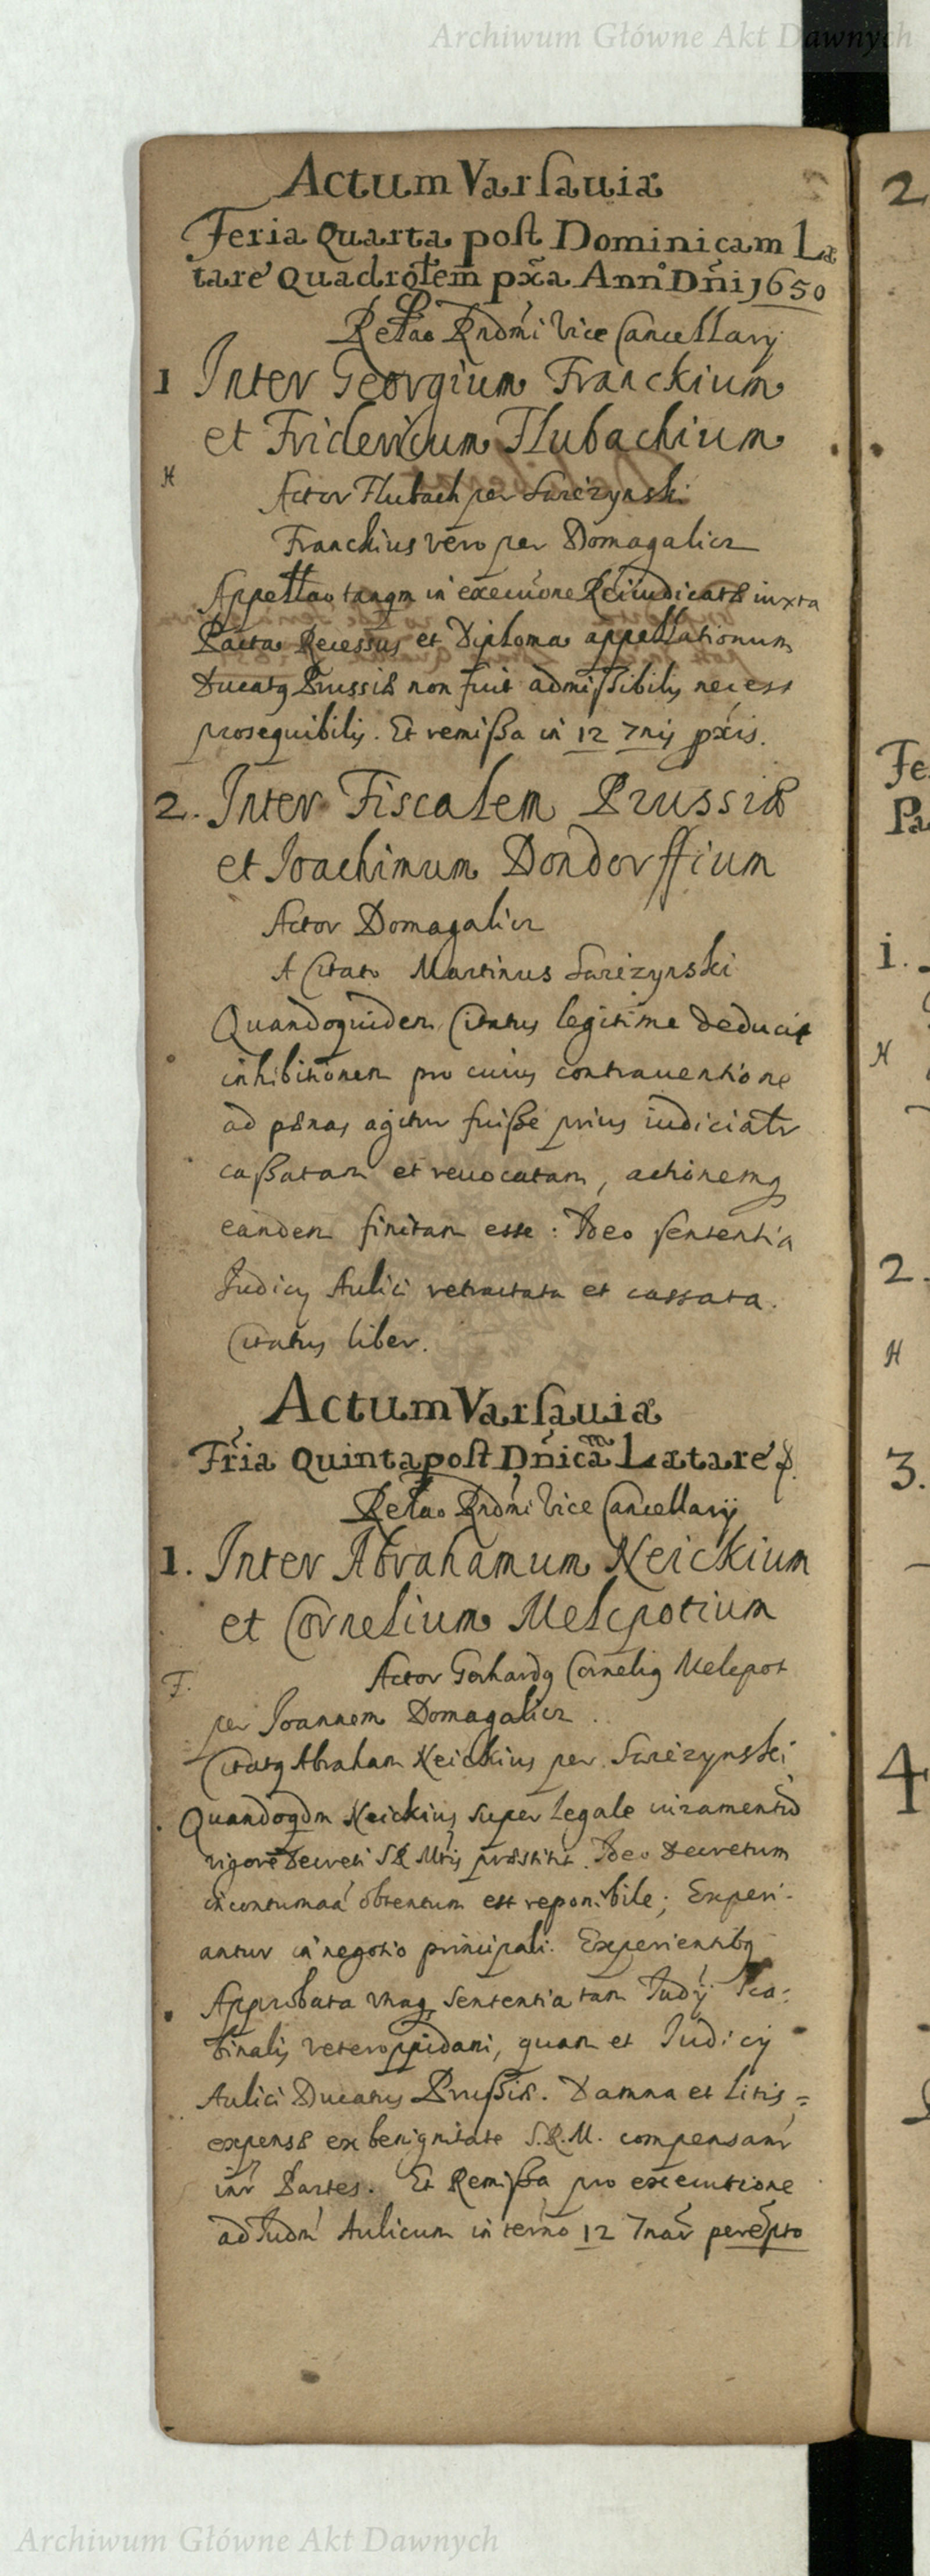 Archiwum Główne Akt Dawnych
Actum Varsauiæ
Feria Quarta post Dominicam Læ
tare Quadrọlem pxa Anno Dni 1650
Relao Rndmi Vice Cancellarij
1 Inter Georgium Franckium
et Fridericum Flubachium
H
Actor Flubach per Swiezynski
Franckius vero per Domagalicz
Appellao tanqm in execuone Rei iudicatæ iuxta
Pacta Recessus et Diploma appellationum
Ducatq Prussiæ non fuit admissibilis nec est
prosequibilis. Et remissa in 12 7nis pxis.
2. Inter Fiscalem Prussiæ
et Ioachimum Dondorffium
Actor Domagalicz
A Citato Martinus Swiezynski
Quandoquidem Citatus legitime deducit
inhibitionem pro cuius contrauentione
ad pænas agitur fuisse prius iudicialr
cassatam et reuocatam, actionemq
eandem finitam esse: Ideo sententia
Iudicij Aulici retractata et cassata.
Citatus liber.
Actum Varsauiæ
Fria Quinta post Dnicā Lætare &.
Relao Rndmi Vice Cancellarij
1. Inter Abrahamum Neickium
et Cornelium Melepotium
F.
Actor Gerhardq Cornelig Melepot
per Joannem Domagalicz.
Citatq Abraham Neickius per Swiezynski
Quandoqdm Neickius super legale iuramentū
vigore Decreti SR Mtis præstitit. Ideo Decretum
in contumaa obtentum est reponibile; Experi-
antur in negotio principali. Experientibq
Approbata vtraq sententia tam Iudij Sca-
binalis veteroppidani, quam et Iudicij
Aulici Ducatus Prussiæ. Damna et litis=
expensæ ex benignitate S.R.M. compensanr
intr Partes. Et Remissa pro executione
ad Iudm Aulicum in termo 12 7nar perempto
2
Fe
Pa
i.
H
2.
H
3.
4
Archiwum Główne Akt Dawnych